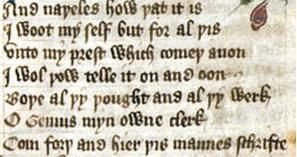 And napeles how þat it is
I woot my self but for al þis
Vnto my prest which comeþ anon
I wol ȝow telle it on and oon
Boþe al my þought and al my werk
O Genius myn owne clerk
Com forþ and hier þis mannes schrifte